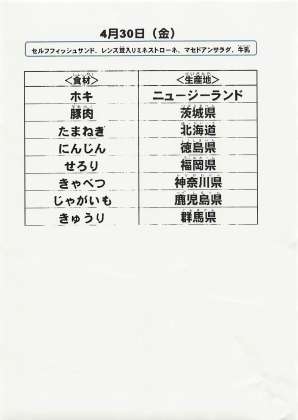 4月30日（金）
セルフフィッシュサンド、レンズ豆入りミネストローネ、マセドアンサラダ、牛乳
＜食材＞ ＜生産地＞
ホキ ニュージーランド
豚肉 茨城県
たまねぎ 北海道
にんじん 徳島県
せろり 福岡県
きゃべつ 神奈川県
じゃがいも 鹿児島県
きゅうり 群馬県